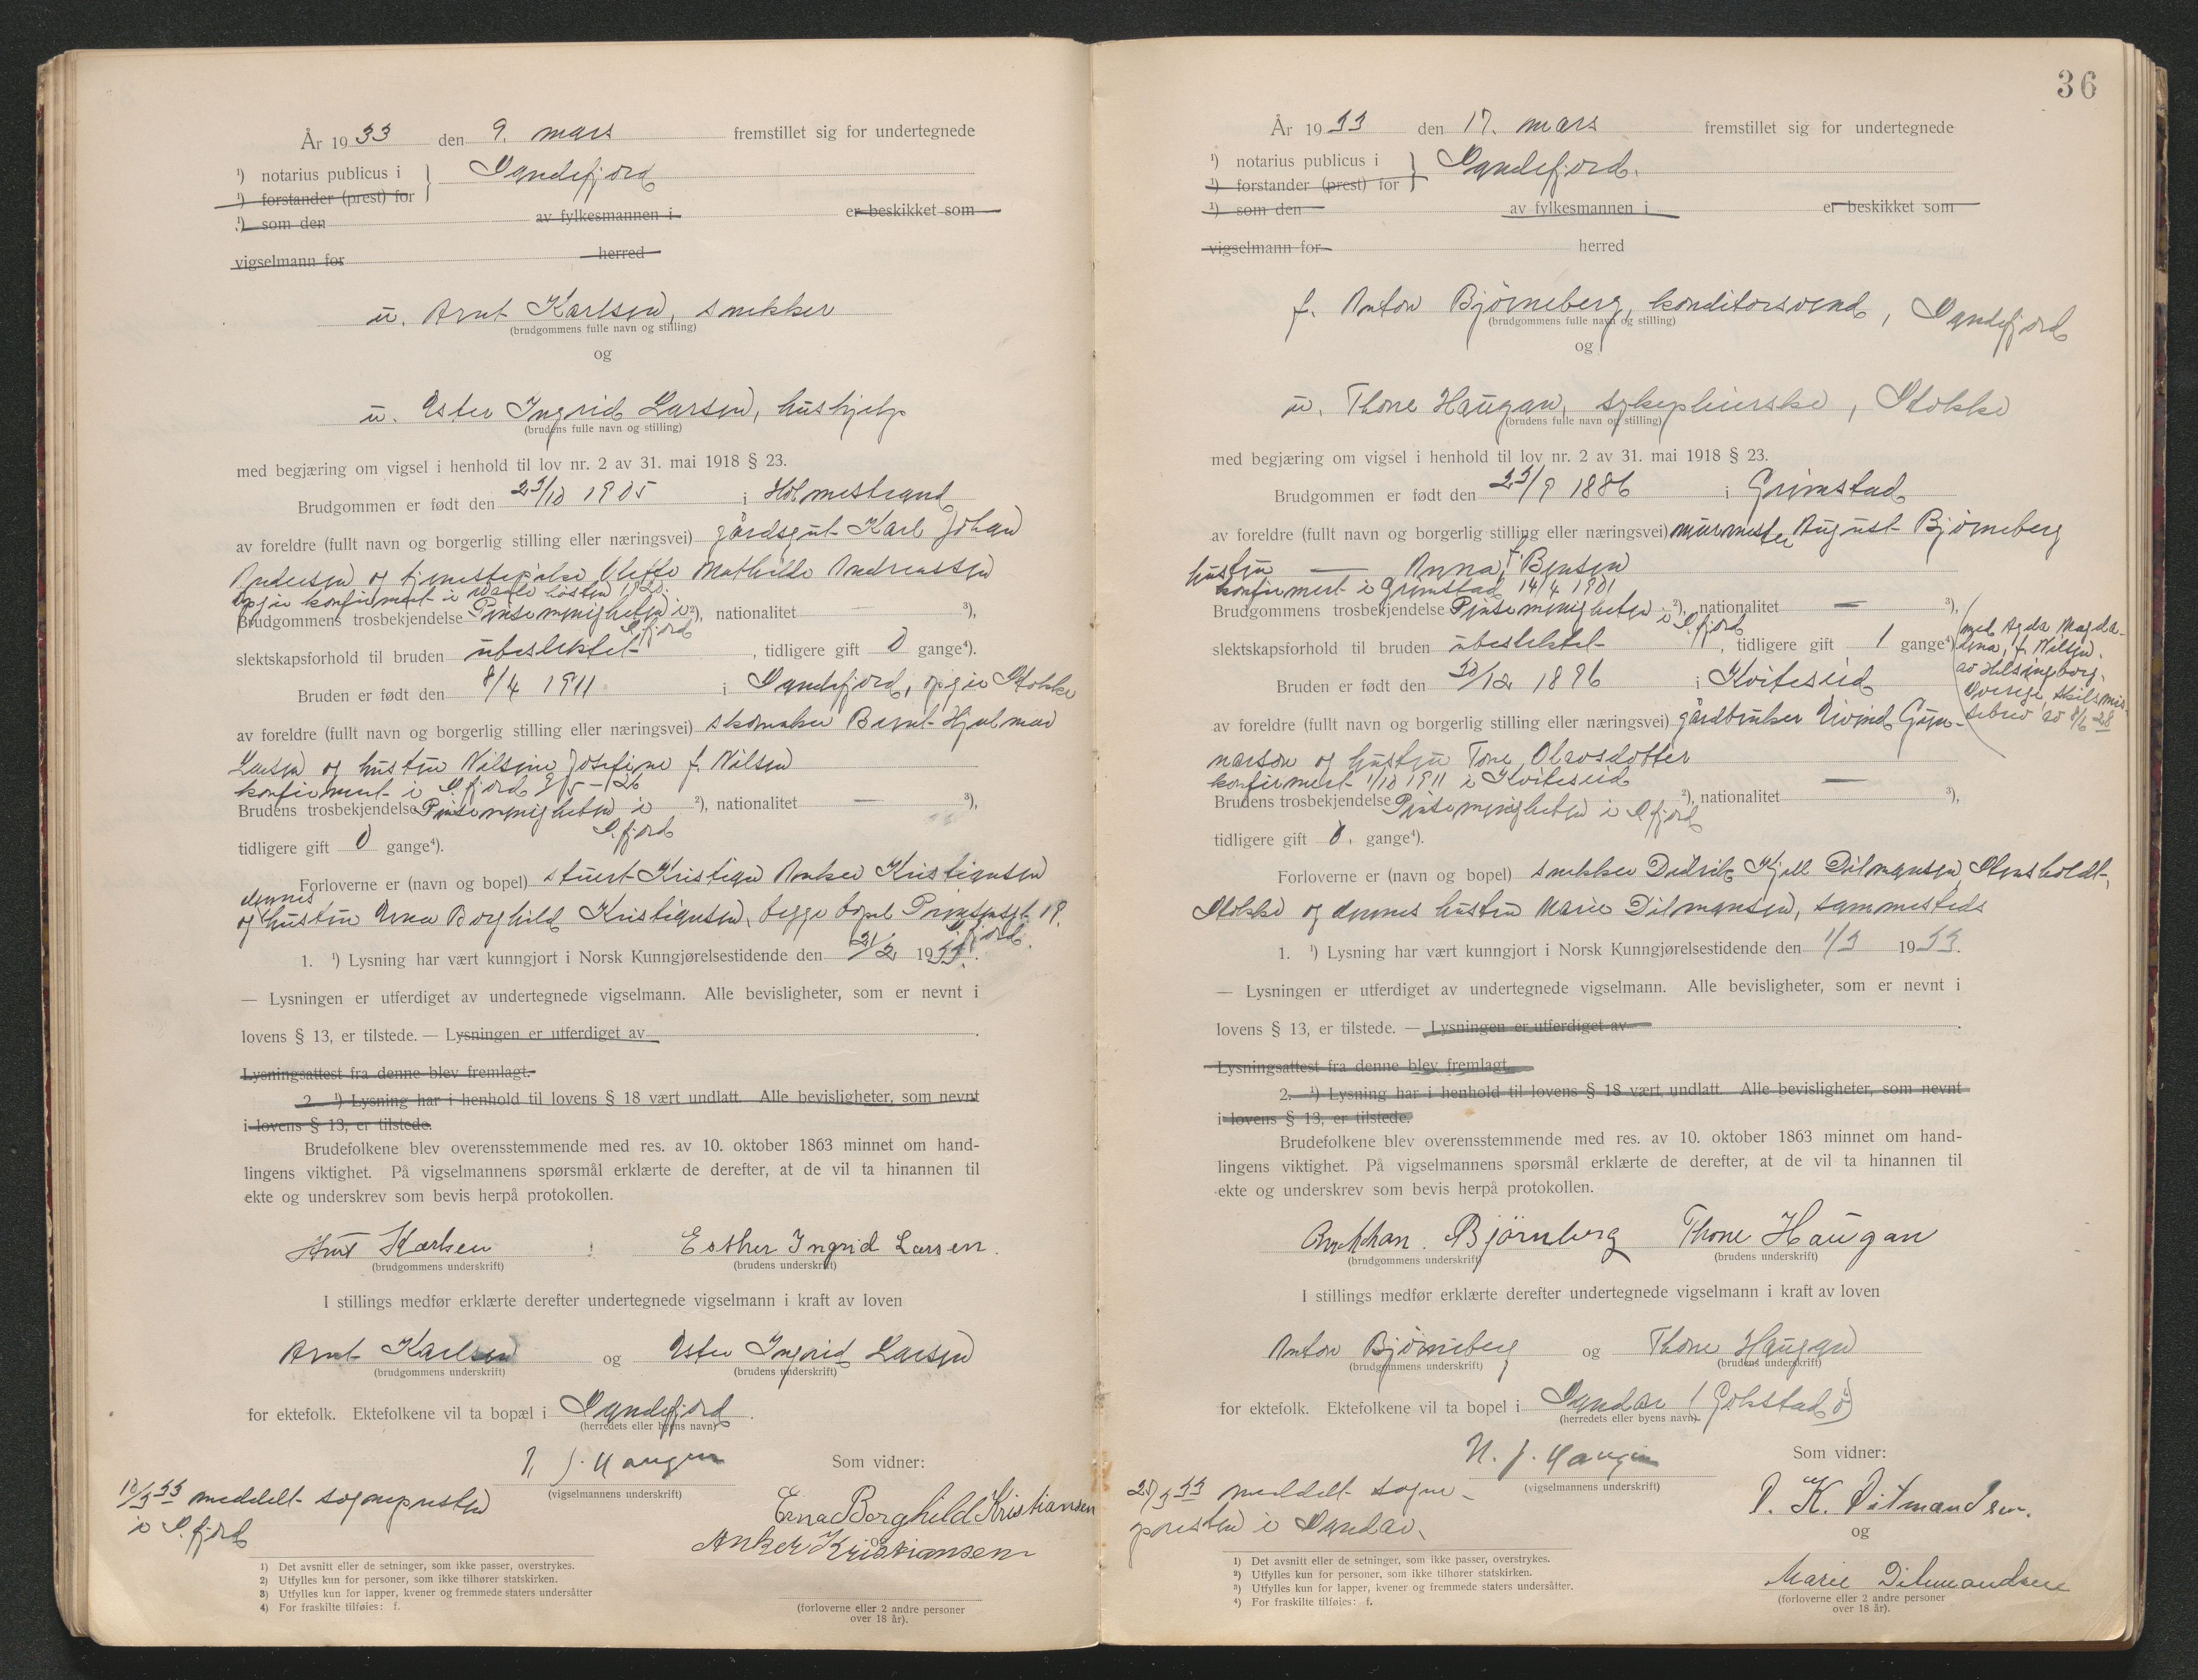 År 1933 den 9. mars fremstillet sig for undertegnede
¹) notarius publicus i } Sandefjord
¹) forstander (prest) for
¹) som den av fylkesmannen i er beskikket som
vigselmann for herred
u. Arnt Karlsen, snekker
(brudgommens fulle navn og stilling)
og
u. Ester Ingrid Larsen, hushjelp
(brudens fulle navn og stilling)
med begjæring om vigsel i henhold til lov nr. 2 av 31. mai 1918 § 23.
Brudgommen er født den 23/10 1905 i Holmestrand
av foreldre (fullt navn og borgerlig stilling eller næringsvei) gårdsgut Karl Johan
Andersen og tjenestepike Mathilde Andreassen
opgir konfirmert i høsten 1920.
Brudgommens trosbekjendelse Pinsemenigheten i S.fjord ²), nationalitet — ³),
slektskapsforhold til bruden ubeslektet, tidligere gift 0 gange⁴).
Bruden er født den 8/4 1911 i Sandefjord, opgir Stokke
av foreldre (fullt navn og borgerlig stilling eller næringsvei) skomaker Bernt Hjalmar
Larsen og hustru Nilsine Josefine f. Nilsen
konfirmert i S.fjord 9/5-26
Brudens trosbekjendelse Pinsemenigheten i S.fjord ²), nationalitet — ³),
tidligere gift 0 gange⁴).
Forloverne er (navn og bopel) stuert Kristian Anker Kristiansen
og dennes hustru Erna Borghild Kristiansen, begge bopel Prinsensgt. 19. S.fjord.
1. ¹) Lysning har vært kunngjort i Norsk Kunngjørelsestidende den 21/2 1933.
— Lysningen er utferdiget av undertegnede vigselmann. Alle bevisligheter, som er nevnt i
lovens § 13, er tilstede. — Lysningen er utferdiget av
Lysningsattest fra denne blev fremlagt.
2. ¹) Lysning har i henhold til lovens § 18 vært undlatt. Alle bevisligheter, som nevnt
i lovens § 13, er tilstede.
Brudefolkene blev overensstemmende med res. av 10. oktober 1863 minnet om hand-
lingens viktighet. På vigselmannens spørsmål erklærte de derefter, at de vil ta hinannen til
ekte og underskrev som bevis herpå protokollen.
Arnt Karlsen Esther Ingrid Larsen.
(brudgommens underskrift) (brudens underskrift)
I stillings medfør erklærte derefter undertegnede vigselmann i kraft av loven
Arnt Karlsen og Ester Ingrid Larsen
(brudgommens underskrift) (brudens underskrift)
for ektefolk. Ektefolkene vil ta bopæl i Sandefjord.
(herredets eller byens navn)
N. J. Haugen Som vidner:
(vigselmannens underskrift)
10/3 33 meddelt sognepresten
i S.fjord
Erna Borghild Kristiansen
og
Anker Kristiansen
(forloverne eller 2 andre personer
over 18 år).
1) Det avsnitt eller de setninger, som ikke passer, overstrykes.
2) Utfylles kun for personer, som ikke tilhører statskirken.
3) Utfylles kun for lapper, kvener og fremmede staters undersåtter
4) For fraskilte tilføies: f.
36
År 1933 den 17. mars fremstillet sig for undertegnede
¹) notarius publicus i } Sandefjord.
¹) forstander (prest) for
¹) som den av fylkesmannen i er beskikket som
vigselmann for herred
f. Anton Bjørneberg, konditorsvend, Sandefjord
(brudgommens fulle navn og stilling)
og
u. Thone Haugan, sykepleierske, Stokke
(brudens fulle navn og stilling)
med begjæring om vigsel i henhold til lov nr. 2 av 31. mai 1918 § 23.
Brudgommen er født den 23/9 1886 i Grimstad
av foreldre (fullt navn og borgerlig stilling eller næringsvei) murmester August Bjørneberg
hustru — Anna f. Bensen
konfirmert i Grimstad 14/4 1901
Brudgommens trosbekjendelse Pinsemenigheten i S.fjord ²), nationalitet — ³),
slektskapsforhold til bruden ubeslektet, tidligere gift 1 gange⁴)
(med Agda Magda-
lena, f. Nilsen.
av Helsingborg,
Sverige, skilsmis-
sebrev av 8/6 28
Bruden er født den 30/12 1896 i Kviteseid
av foreldre (fullt navn og borgerlig stilling eller næringsvei) gårdbruker Eivind Gun-
narson og hustru Tone Olavsdotter
konfirmert 1/10 1911 i Kviteseid
Brudens trosbekjendelse Pinsemenigheten i S.fjord ²), nationalitet — ³),
tidligere gift 0. gange⁴).
Forloverne er (navn og bopel) snekker Didrik Kjell Ditmansen, Stensholdt,
Stokke og dennes hustru Marie Ditmansen, sammesteds
1. ¹) Lysning har vært kunngjort i Norsk Kunngjørelsestidende den 1/3 1933.
— Lysningen er utferdiget av undertegnede vigselmann. Alle bevisligheter, som er nevnt i
lovens § 13, er tilstede. — Lysningen er utferdiget av
Lysningsattest fra denne blev fremlagt.
2. ¹) Lysning har i henhold til lovens § 18 vært undlatt. Alle bevisligheter, som nevnt
i lovens § 13, er tilstede.
Brudefolkene blev overensstemmende med res. av 10. oktober 1863 minnet om hand-
lingens viktighet. På vigselmannens spørsmål erklærte de derefter, at de vil ta hinannen til
ekte og underskrev som bevis herpå protokollen.
Bjørnberg Thone Haugan
(brudgommens underskrift) (brudens underskrift)
I stillings medfør erklærte derefter undertegnede vigselmann i kraft av loven
Anton Bjørneberg og Thone Haugan
(brudgommens underskrift) (brudens underskrift)
for ektefolk. Ektefolkene vil ta bopel i Sandar (Gokstad)
(herredets eller byens navn)
N. J. Haugen Som vidner:
(vigselmannens underskrift)
20/3 33 meddelt sogne-
presten i Sandar.
D. K. Ditmandsen.
og
Marie Ditmandsen
(forloverne eller 2 andre personer
over 18 år).
1) Det avsnitt eller de setninger, som ikke passer, overstrykes.
2) Utfylles kun for personer, som ikke tilhører statskirken.
3) Utfylles kun for lapper, kvener og fremmede staters undersåtter.
4) For fraskilte tilføies: f.